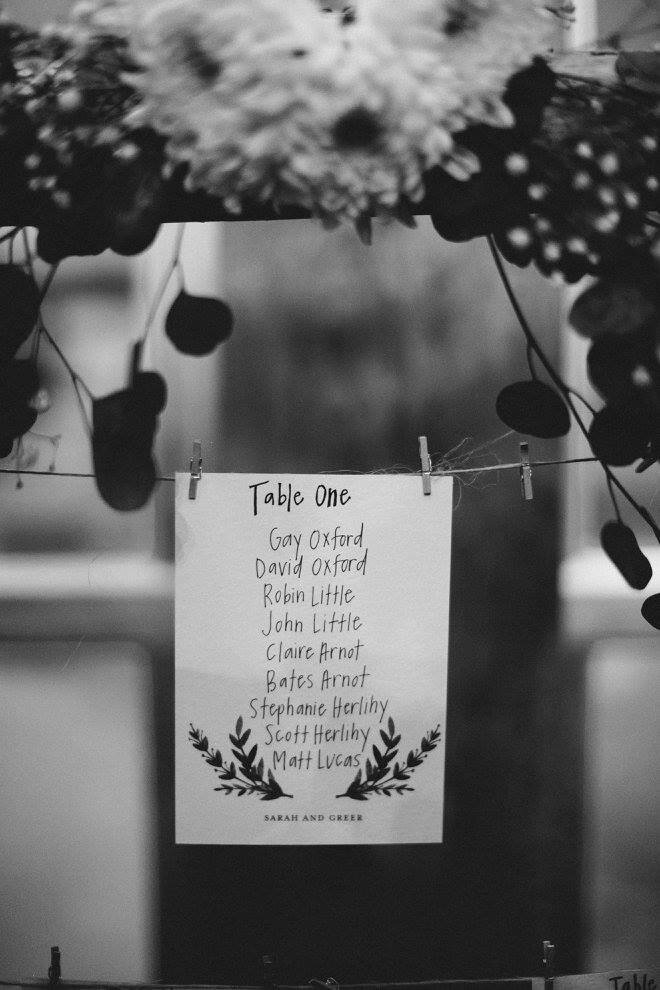 Table One
Gay Oxford
David Oxford
Robin Little
John Little
Claire Arnot
Bates Arnot
Stephanie Herlihy
Scott Herlihy
Matt Lucas
SARAH AND GREER
Table